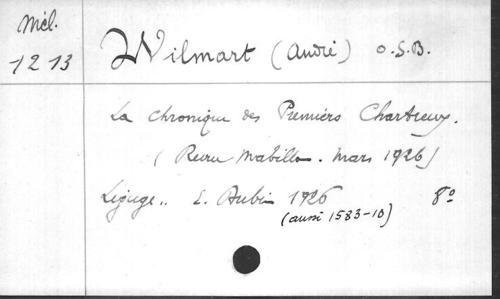 Mél.
1213
Wilmart (André) O.S.B.
La chronique des Premiers Chartreux.
(Revue Mabillon. Mars 1926)
Ligugé.. E. Aubin 1926 8º
(aussi 1583-10)